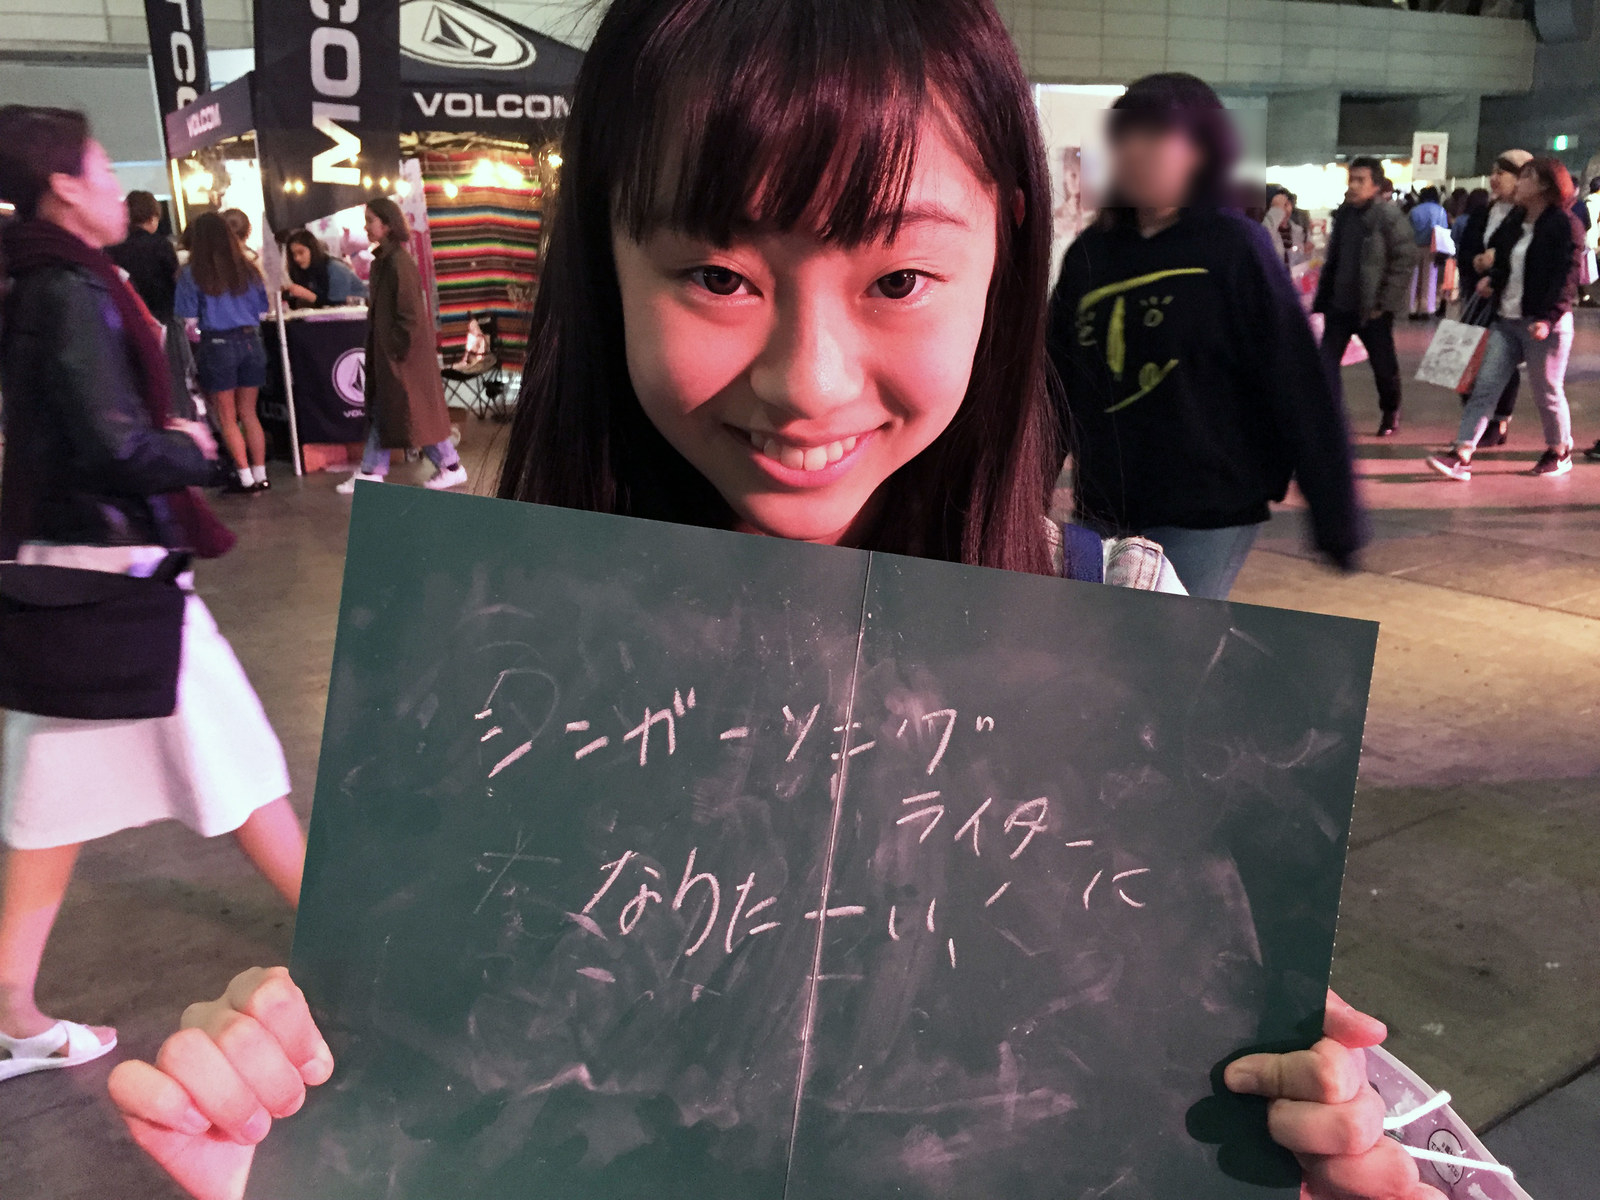 VOLCOM
VOLCOM
COM
シンガーソニング
ライターに
なりたーい!